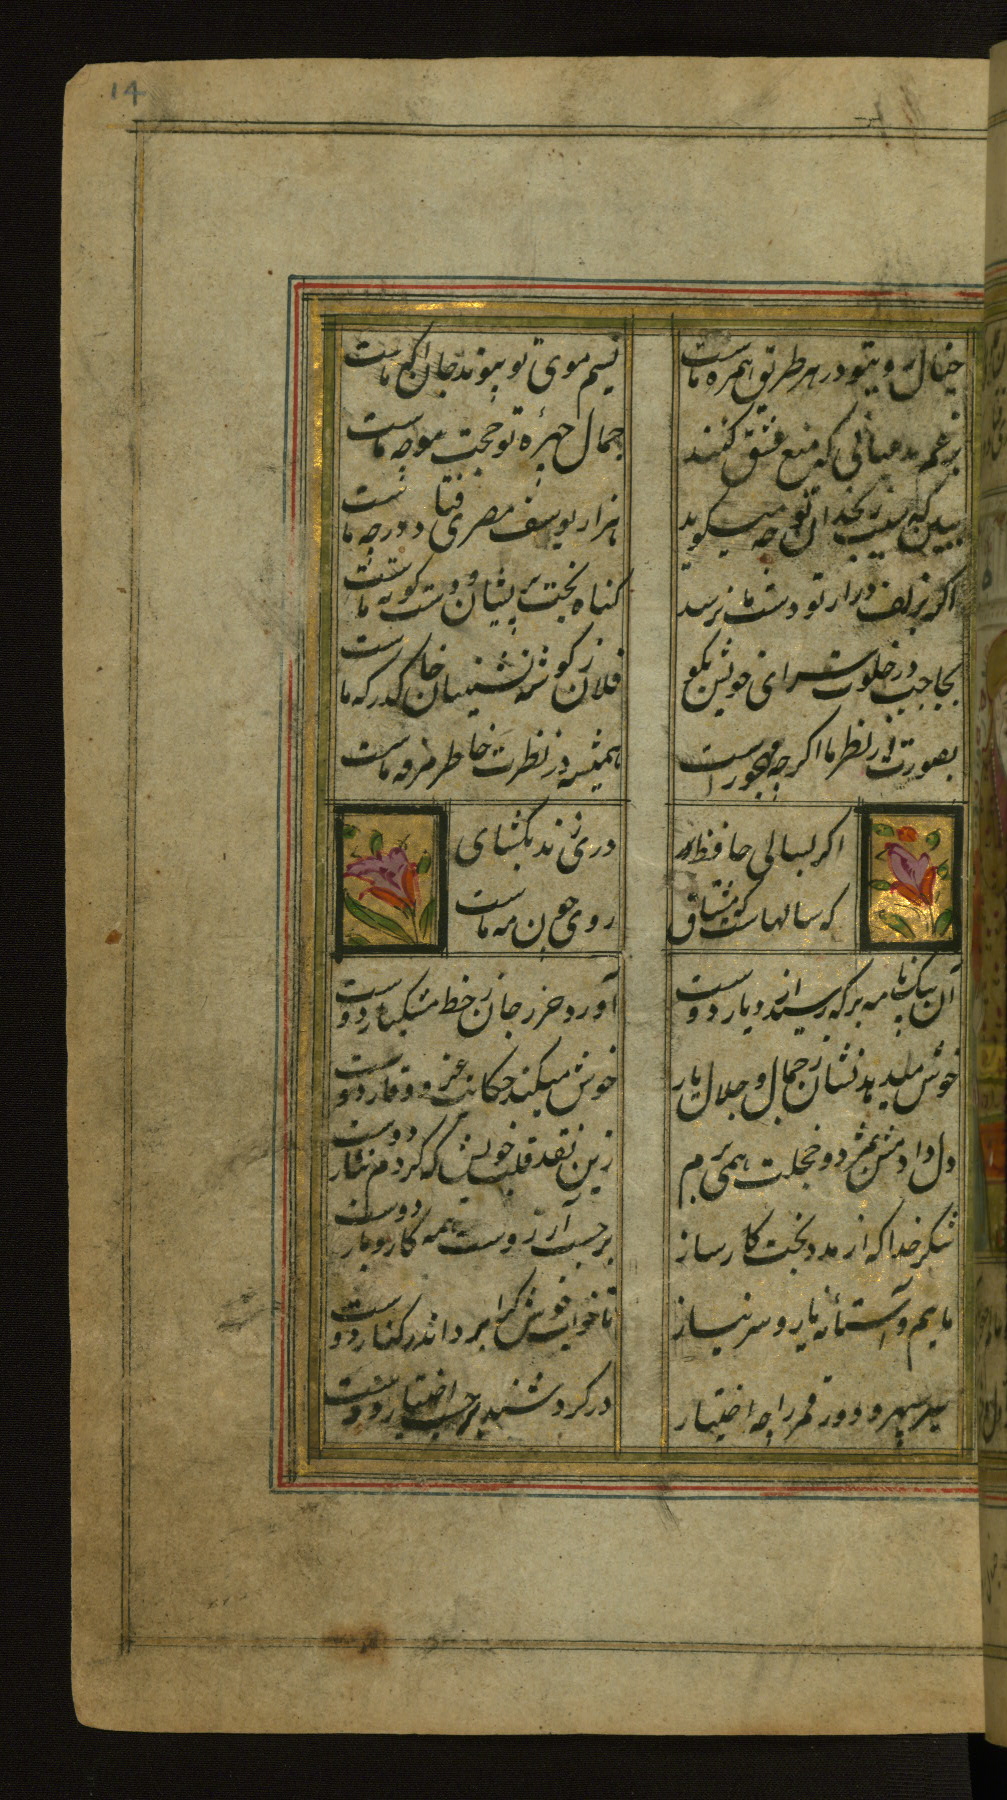 14
خیال روی تو در هر طریق همره ماست
نسیم موی تو پیوند جان آگه ماست
برغم مدعیانی که منع عشق کنند
جمال چهرهٔ تو حجت موجه ماست
ببین که سیب زنخدان تو چه میگوید
هزار یوسف مصری فتاده در چه ماست
اگر بزلف دراز تو دست ما نرسد
گناه بخت پریشان و دست کوته ماست
بحاجب در خلوت سرای خویش بگو
فلان ز گوشه نشینان خاک درگه ماست
بصورت از نظر ما اگر چه مهجور است
همیشه در نظرت خاطر مرفه ماست
اگر بسالی حافظ
دری زند بگشای
که سالهاست که مشتاق
روی چون مه ماست
آن پیک نامه بر که رسید از دیار دوست
آورد حرز جان ز خط مشکبار دوست
خوش میدهد نشان ز جمال و جلال یار
خوش میکند حکایت عز و وقار دوست
دل دادمش بمژده و خجلت همی برم
زین نقد قلب خویش که کردم نثار دوست
شکر خدا که از مدد بخت کارساز
بر حسب آرزوست همه کار و بار دوست
مائیم و آستانهٔ یار و سر نیاز
تا خواب خوش کرا برد اندر کنار دوست
سیر سپهر و دور قمر را چه اختیار
در گردشند بر حسب اختیار دوست